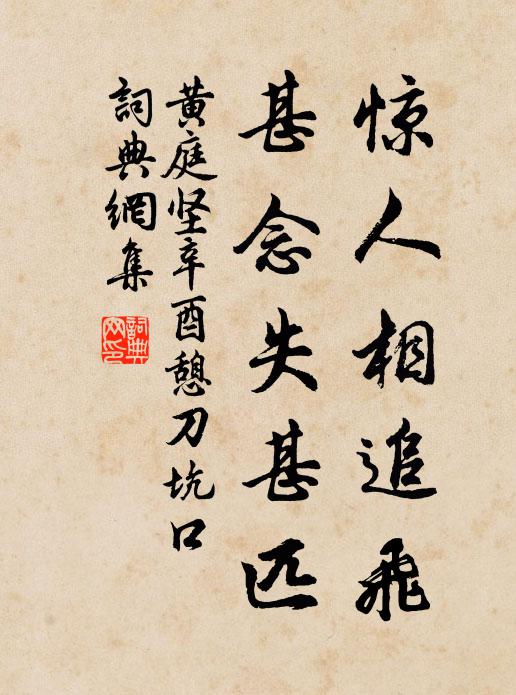 惊人相追飛
甚念失甚匹
黄庭坚辛酉憩刀坑口
詞典網集
詞典网印